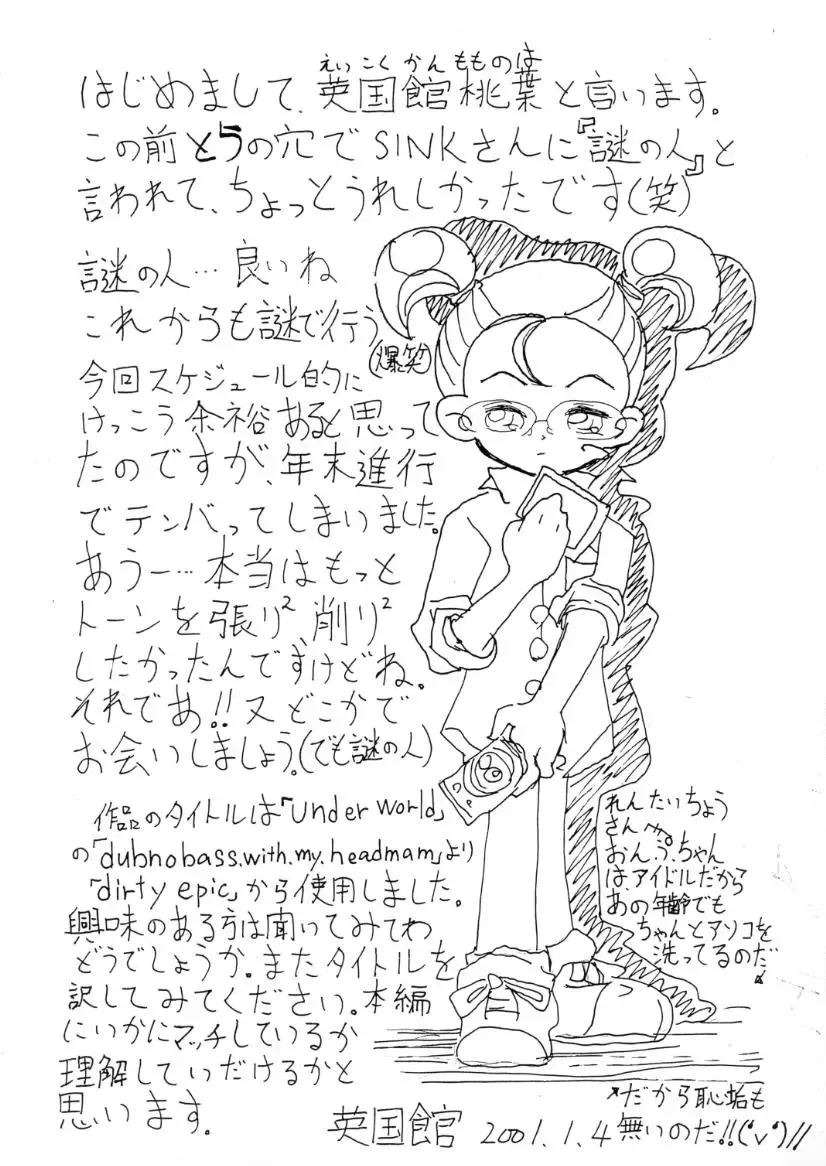 えいこくかんもものは
はじめまして、英国館桃葉と言います。
この前とらの穴でSINKさんに『謎の人』と
言われて、ちょっとうれしかったです(笑)
謎の人…良いね
これからも謎で行う
(爆笑)
今回スケジュール的に
けっこう余裕あると思って
たのですが、年末進行
でテンバってしまいました。
あうー…本当はもっと
トーンを張り²、削り²
したかったんですけどね。
それであ!!又どこかで
お会いしましょう。(でも謎の人)
作品のタイトルは「Under World」
の「dubnobass.with.my.headmam」より
「dirty epic」から使用しました。
興味のある方は聞いてみてわ
どうでしょうか。またタイトルを
訳してみてください。本編
にいかにマッチしているか
理解していだけるかと
思います。
英国館 2001.1.4